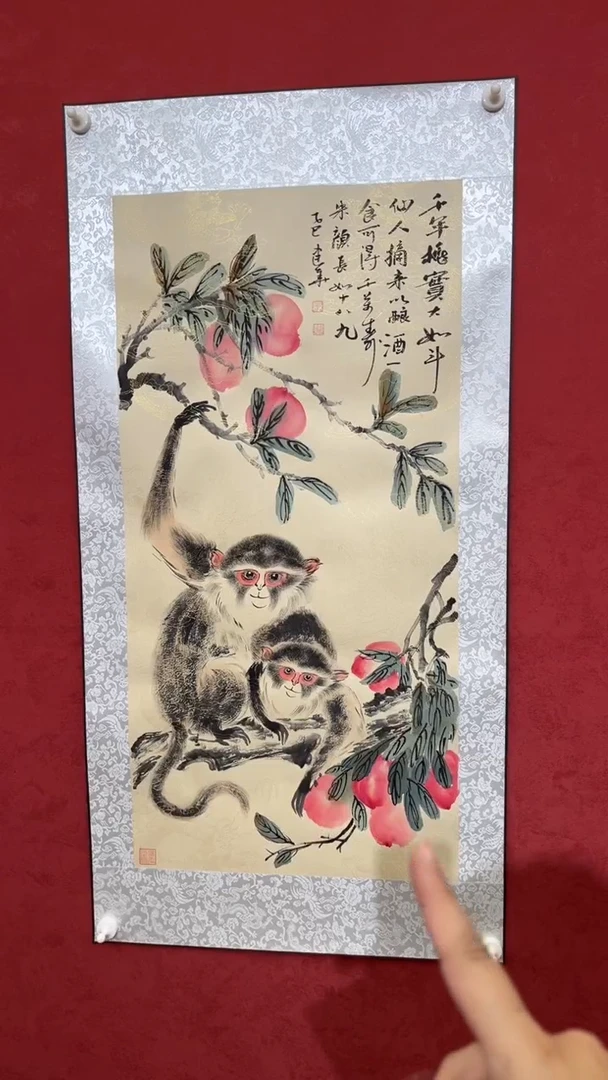 千年桃實大如斗
仙人摘来以釀酒一
食可得千萬壽
朱顏長如十八九
乙巳 建華